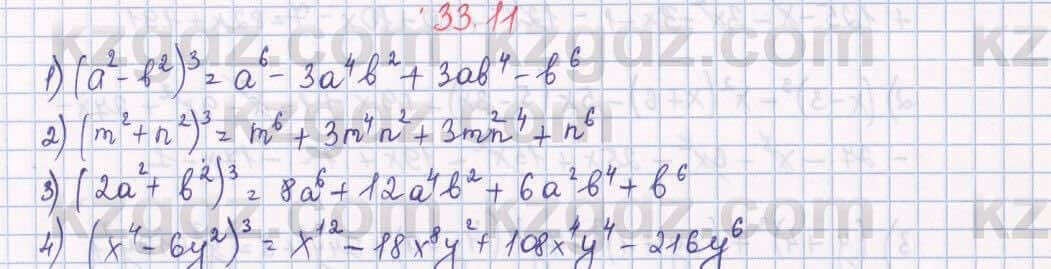 33.11
1) (a² - b²)³ = a⁶ - 3a⁴b² + 3ab⁴ - b⁶
2) (m² + n²)³ = m⁶ + 3m⁴n² + 3m²n⁴ + n⁶
3) (2a² + b²)³ = 8a⁶ + 12a⁴b² + 6a²b⁴ + b⁶
4) (x⁴ - 6y²)³ = x¹² - 18x⁸y² + 108x⁴y⁴ - 216y⁶